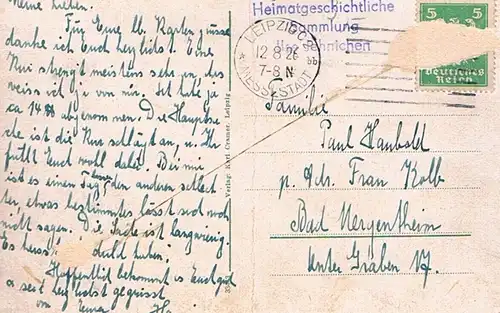 Meine Lieben.
Für Eure lb. Karten, muss
danke ich Euch herzlichst. Eine
Kur strengt meistens sehr an, das
weiss ich die von mir. Ich habe ja
ca 14 abgenommen. Die Hauptsa-
che ist die Kur schlägt an, u. Ihr
fühlt Euch wohl dabei. Bei mir
ist es einen Tag besser den anderen schlech-
ter, etwas bestimmtes lässt sich noch
nicht sagen. Die Sache ist langwierig.
Es heisst: Geduld haben.
Hoffentlich bekommt es Euch gut
u seit herzlichst gegrüsst
von Eurer
Verlag Karl Cramer, Leipzig
Heimatgeschichtliche
Sammlung
LEIPZIG
12 8 26
7-8 N
MESSESTADT
5 5
Deutsches
Reich
Familie
Paul Haubold
p. Adr. Frau Kolb
Bad Mergentheim
Unter Graben 17.